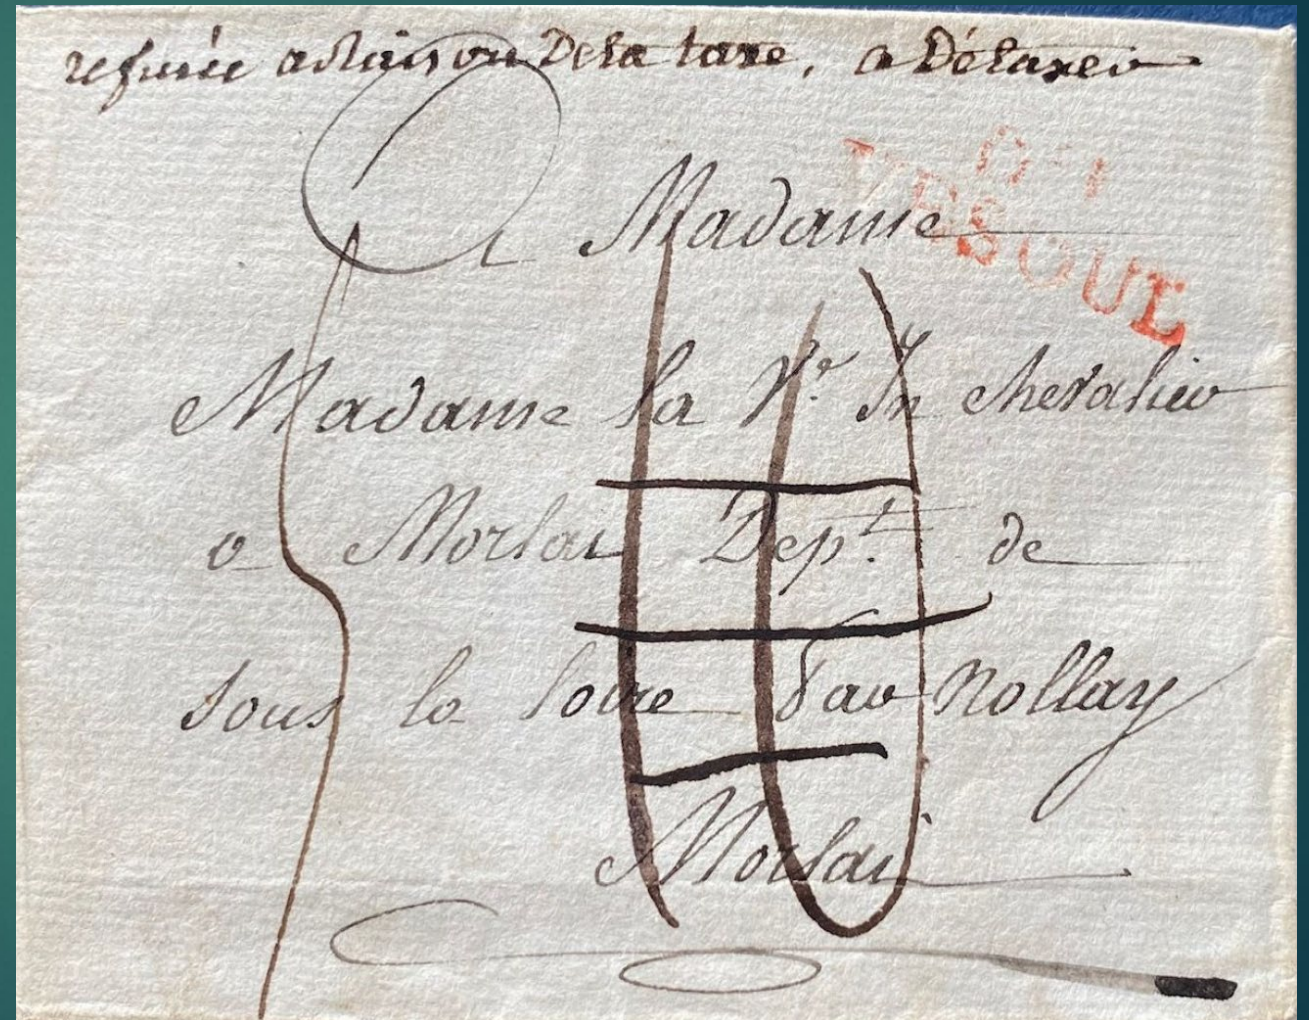 refusée a Raison De la taxe, a Détaxer
A Madame
VESOUL
Madame la Ve Jn chevalier
a Morlai Dept. de
sous la Loire Nollay
Morlai